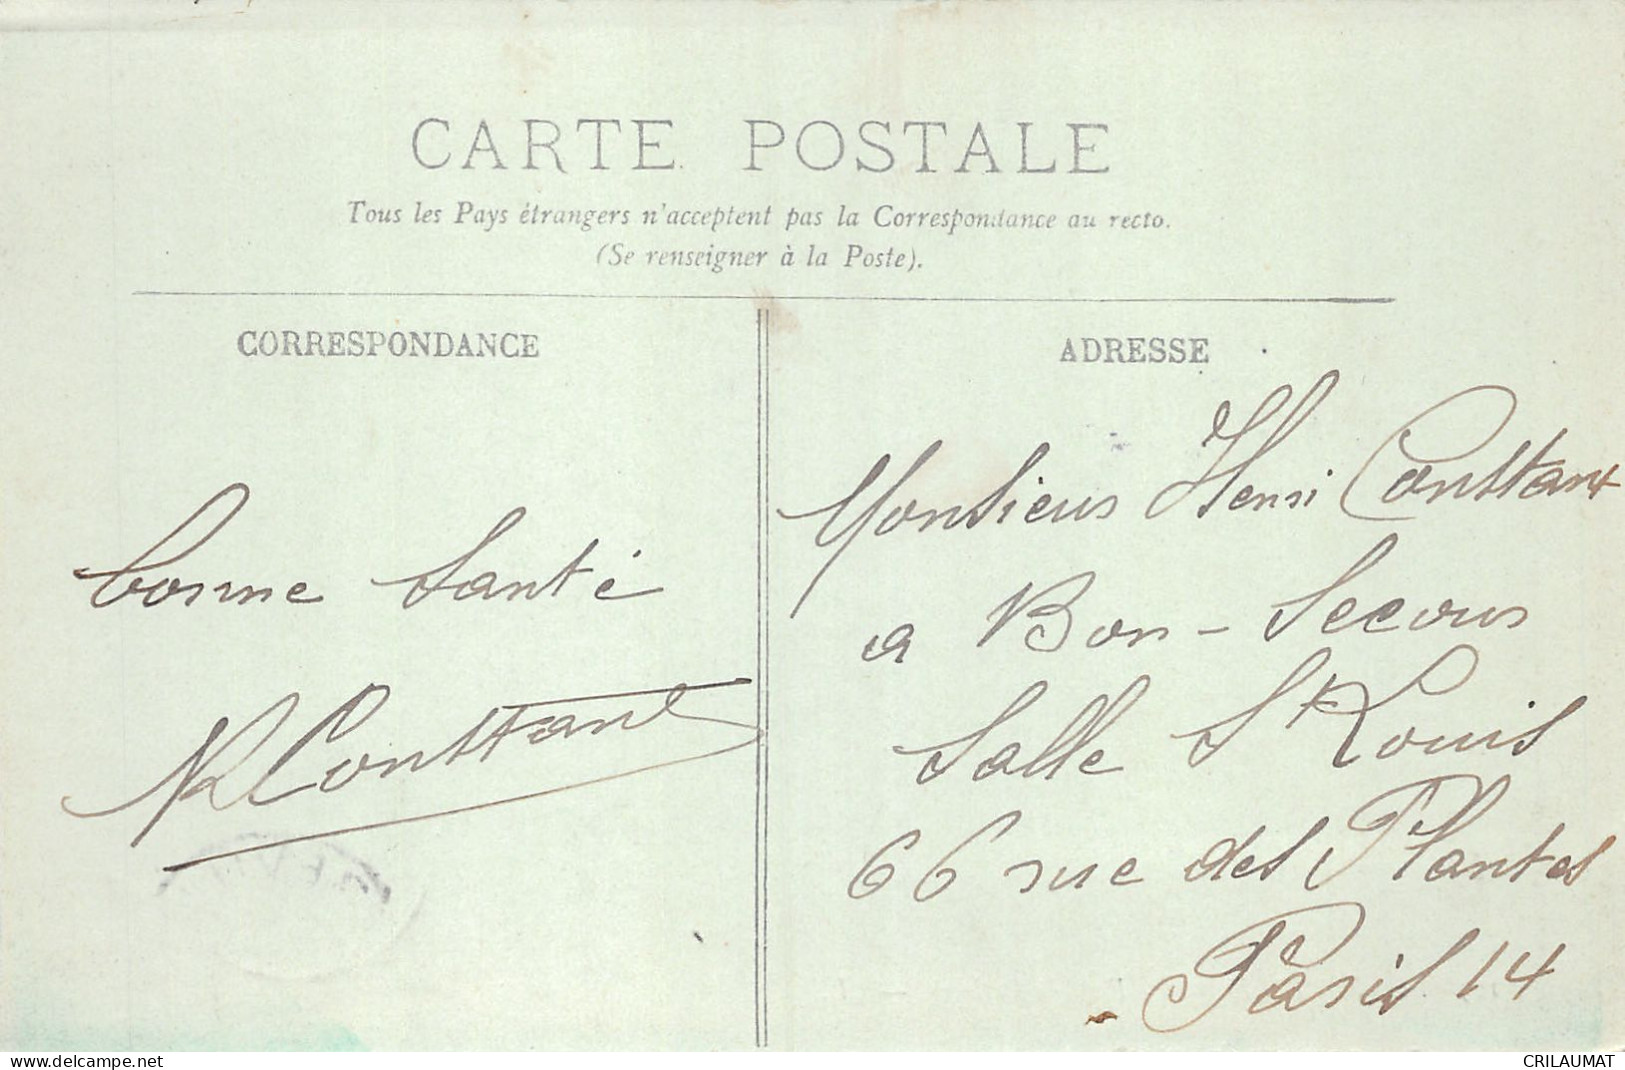 CARTE POSTALE
Tous les Pays étrangers n'acceptent pas la Correspondance au recto.
(Se renseigner à la Poste).
CORRESPONDANCE
ADRESSE
bonne Santé
Constant
Monsieur Henri Constant
a Bon-Secours
Salle St Louis
66 rue des Plantes
Paris 14
www.delcampe.net
CRILAUMAT